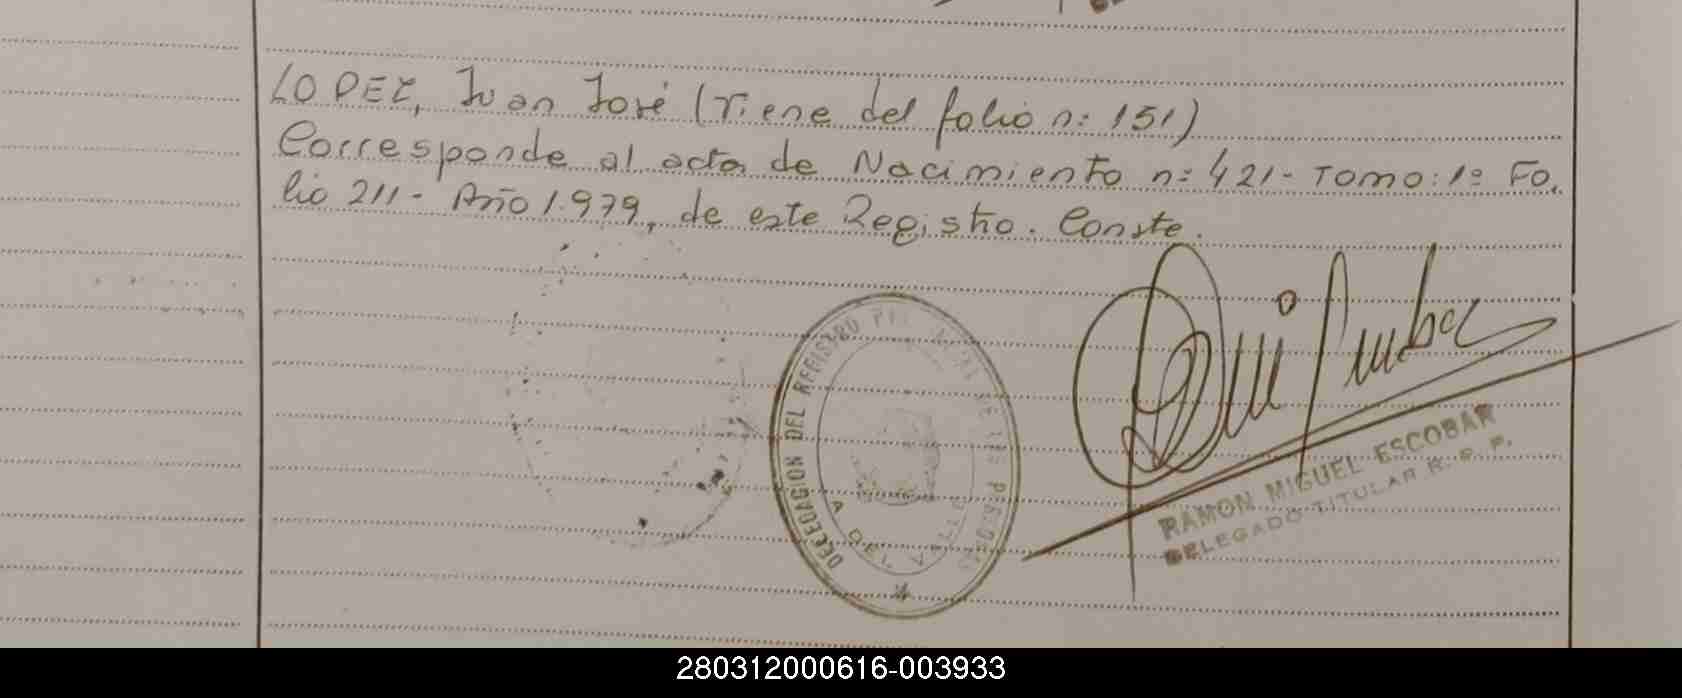 LOPEZ, Juan José (Viene del folio n: 151)
Corresponde al acta de Nacimiento n: 421- Tomo: 1º Fo.
lio 211- Año 1.979, de este Registro. Conste.
DELEGACION DEL REGISTRO DE LAS PERSONAS
A DEL VALLE
RAMON MIGUEL ESCOBAR
DELEGADO TITULAR R. P.
280312000616-003933